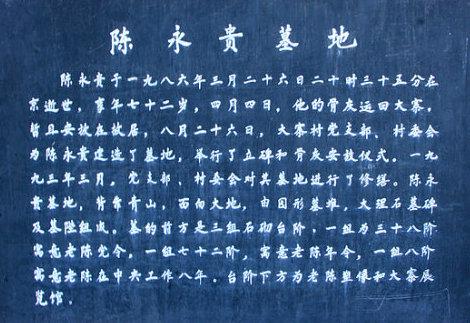 陈永贵墓地
陈永贵于一九八六年三月二十六日二十时三十五分在
京逝世，享年七十二岁，四月四日，他的骨灰运回大寨，
暂且安放在故居，八月二十六日，大寨村党支部、村委会
为陈永贵建造了墓地，举行了立碑和骨灰安放仪式。一九
九三年三月，党支部、村委会对其墓地进行了修缮。陈永
贵墓地，背靠青山，面向大地，由圆形墓堆，大理石墓碑
及墓阶组成。墓的前方是三组石彻台阶，一组为三十八阶
寓意老陈党令，一组七十二阶，寓意老陈年令，一组八阶
寓意老陈在中央工作八年。台阶下方为老陈塑像和大寨展
览馆。